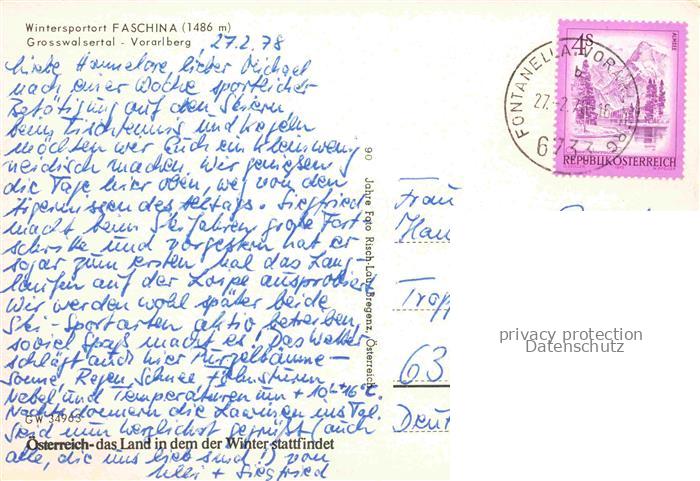 Wintersportort FASCHINA (1486 m)
Grosswalsertal - Vorarlberg
27.2.78
Liebe Hannelore, lieber Michael
nach einer Woche sportlicher
Betätigung auf den Skiern
beim Tischtennis und Kegeln
möchten wir Euch ein klein wenig
neidisch machen. Wir geniessen
die Tage hier oben, weg von den
Ärgernissen des Alltags. Siegfried
macht beim Skifahren große Fort
schritte und vorgestern hat er
sogar zum ersten mal das Lang-
laufen auf der Loipe ausprobiert
Wir werden wohl später beide
Ski-Sportarten aktiv betreiben,
soviel Spaß macht es! Das Wetter
schlägt auch hier Purzelbäume-
Sonne, Regen, Schnee, Föhnstürme,
Nebel und Temperaturen um + 10°-+16°C.
Nachts donnern die Lawinen ins Tal.
Seid nun herzlichst gegrüßt (auch
alle, die uns lieb sind!) von
Ulli + Siegfried
GW 34963
Österreich-das Land in dem der Winter stattfindet
90 Jahre Foto Risch-Lau, Bregenz, Österreich
FONTANELLA, VORARLBERG
27.-2.78-16
6733
4S
ALMSEE
REPUBLIK ÖSTERREICH
Frau
Han
Trop
63
Deut
privacy protection
Datenschutz